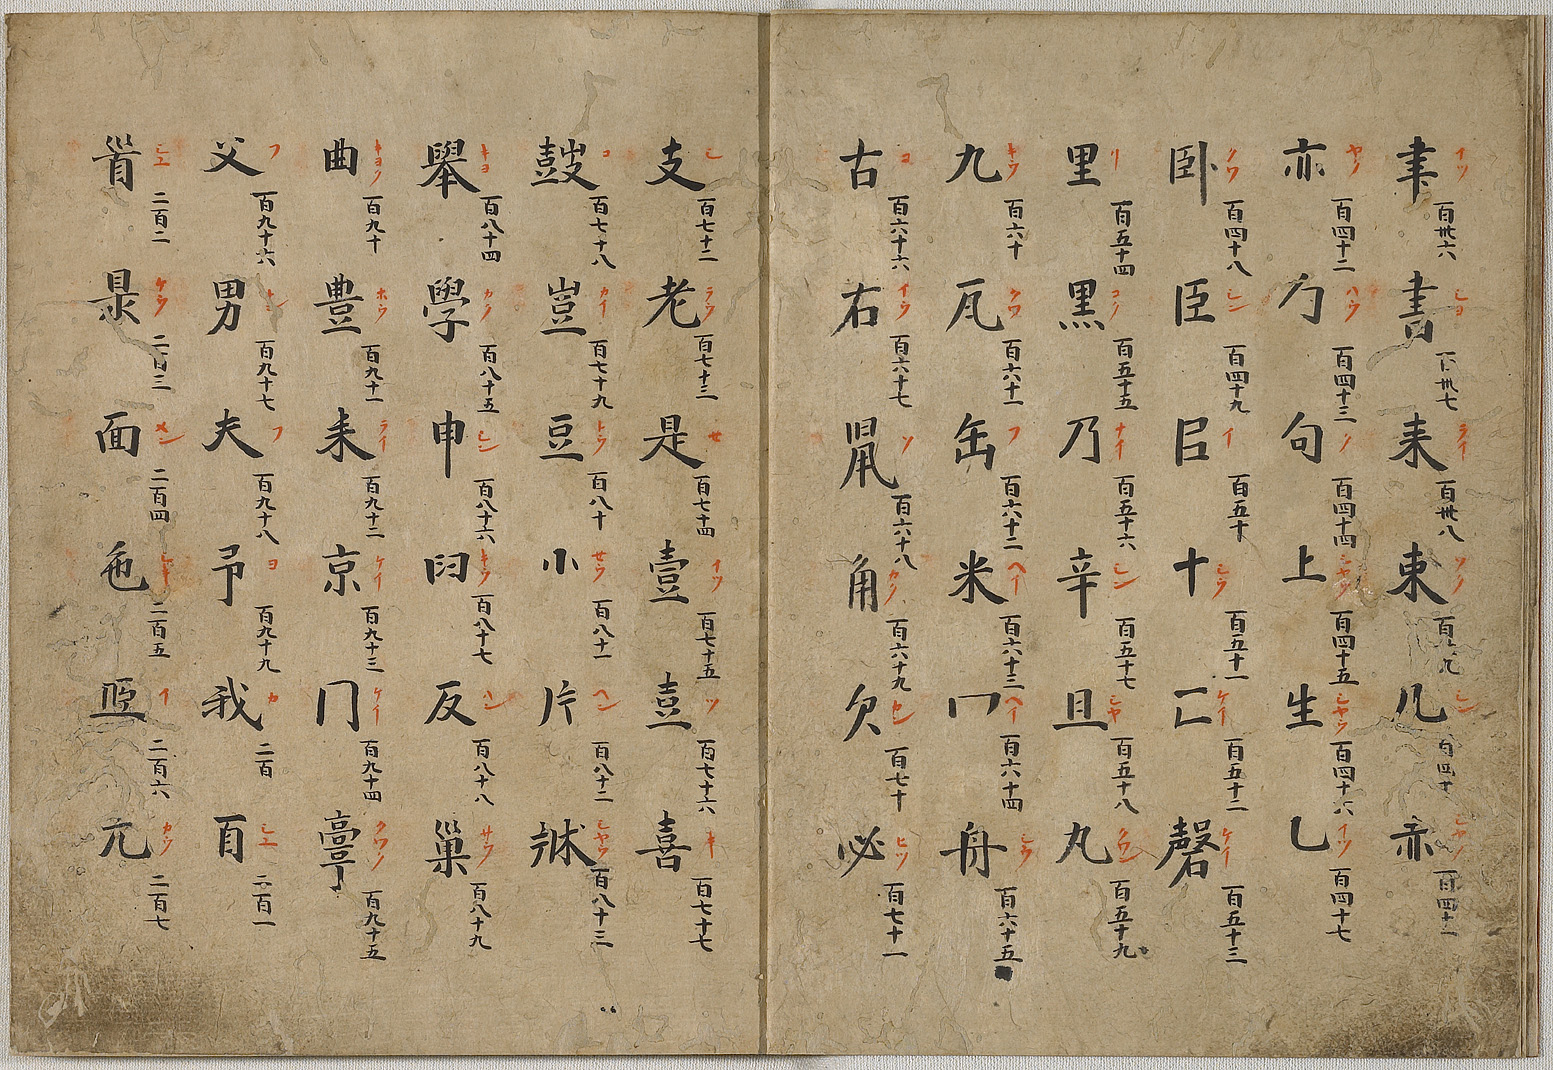 聿 イツ 百卅六 書 シヨ 百卅七 来 ライ 百卅八 東 ソク 百卅九 几 シン 百四十 赤 シヤク 百四十一
亦 ヤク 百四十二 勹 ハウ 百四十三 句 ク 百四十四 上 シヤウ 百四十五 生 シヤウ 百四十六 乚 イツ 百四十七
卧 クワ 百四十八 臣 シン 百四十九 𦣞 イ 百五十 十 シウ 百五十一 匚 ケイ 百五十二 磬 ケイ 百五十三
里 リ 百五十四 黒 コク 百五十五 乃 ナイ 百五十六 辛 シン 百五十七 且 シヤ 百五十八 丸 クワン 百五十九
九 キウ 百六十 瓦 クワ 百六十一 缶 フ 百六十二 米 ヘイ 百六十三 冖 ヘイ 百六十四 舟 シウ 百六十五
古 コ 百六十六 右 イウ 百六十七 鼠 ソ 百六十八 角 カク 百六十九 欠 ケン 百七十 必 ヒツ 百七十一
支 シ 百七十二 老 ラウ 百七十三 是 セ 百七十四 壹 イツ 百七十五 壴 ツ 百七十六 喜 キ 百七十七
鼓 コ 百七十八 豈 カイ 百七十九 豆 トウ 百八十 小 セウ 百八十一 片 ヘン 百八十二 シヤウ 百八十三
舉 キヨ 百八十四 學 カク 百八十五 申 シン 百八十六 臼 キウ 百八十七 反 ハン 百八十八 巢 サウ 百八十九
曲 キヨク 百九十 豊 ホウ 百九十一 来 ライ 百九十二 京 ケイ 百九十三 冂 ケイ 百九十四 𩫖 クワク 百九十五
父 フ 百九十六 男 ナン 百九十七 夫 フ 百九十八 予 ヨ 百九十九 我 カ 二百 𦣻 シユ 二百一
首 シユ 二百二 県 ケウ 二百三 面 メン 二百四 色 シキ 二百五 𦣝 イ 二百六 亢 カウ 二百七